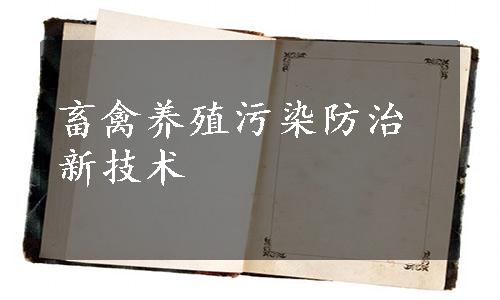 畜禽养殖污染防治
新技术